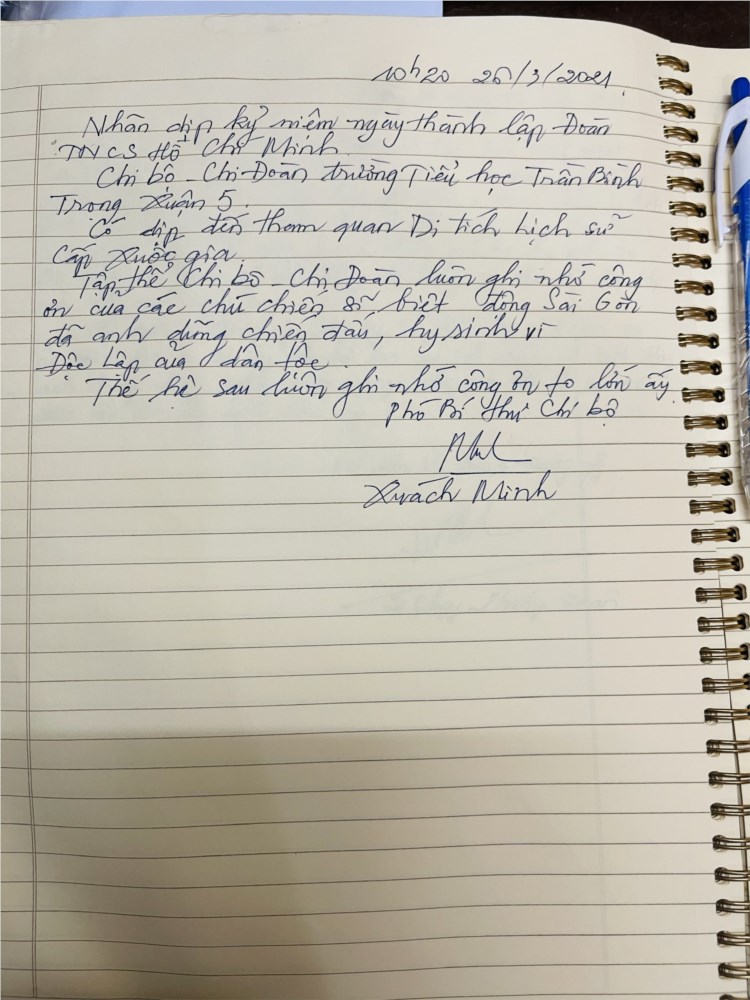 10h20 26/3/2021.
Nhân dịp kỷ niệm ngày thành lập Đoàn
TNCS Hồ Chí Minh.
Chi bộ - Chi Đoàn trường Tiểu học Trần Bình
Trọng Quận 5.
Có dịp đến tham quan Di tích Lịch sử
Cấp Quốc gia.
Tập thể Chi bộ - Chi Đoàn luôn ghi nhớ công
ơn của các chú chiến sĩ biệt động Sài Gòn
đã anh dũng chiến đấu, hy sinh vì
Độc Lập của dân tộc.
Thế hệ sau luôn ghi nhớ công ơn to lớn ấy
Phó Bí thư Chi bộ
Quách Minh